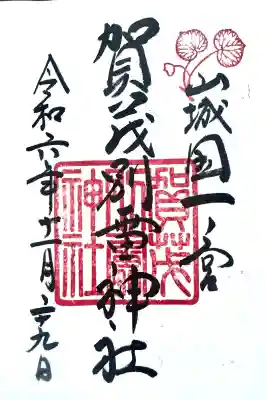 山城国一ノ宮
賀茂別雷神社
令和六年十一月二十九日
賀茂
別雷
神社